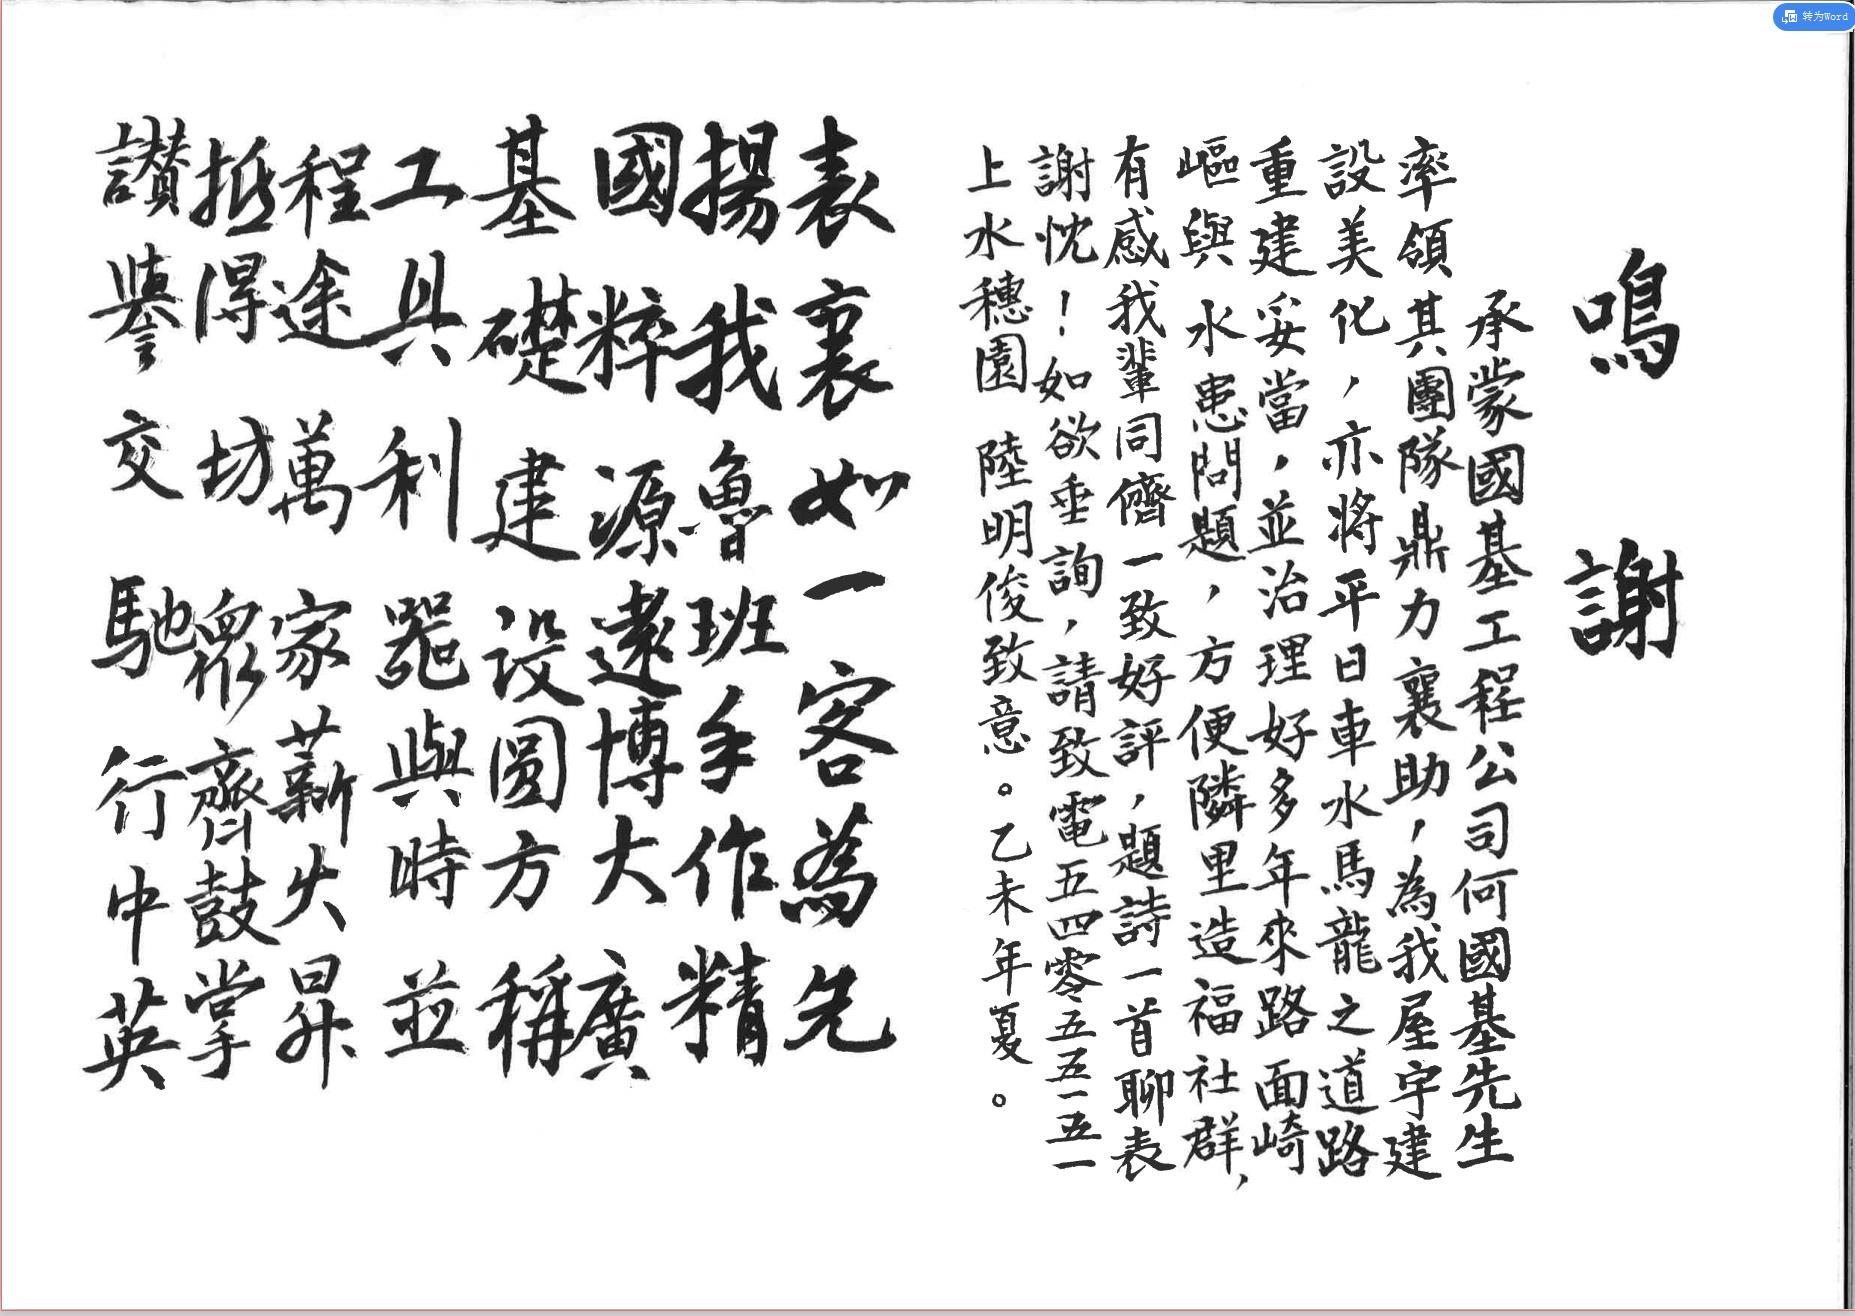 转为Word
鳴謝
承蒙國基工程公司何國基先生
率領其團隊鼎力襄助，為我屋宇建
設美化，亦將平日車水馬龍之道路
重建妥當，並治理好多年來路面崎
嶇與水患問題，方便隣里造福社群，
有感我輩同儕一致好評，題詩一首聊表
謝忱！如欲垂詢，請致電五四零五五一五一
上水穗園 陸明俊致意。乙未年夏。
表裏如一客為先
揚我魯班手作精
國粹源遠博大廣
基礎建设圆方稱
工具利器與時並
程途萬家薪火昇
抵得坊眾齊鼓掌
讚譽交馳行中英